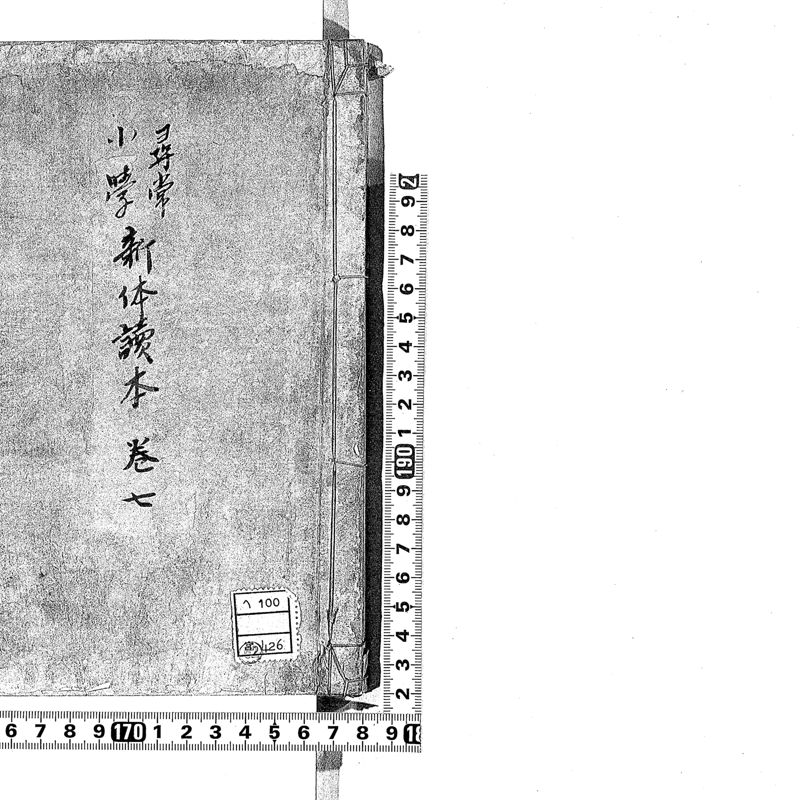 尋常
小學
新体讀本 巻七
ヘ 100
426
2
9
8
7
6
5
4
3
2
1
190
9
8
7
6
5
4
3
2
6 7 8 9 170 1 2 3 4 5 6 7 8 9 18